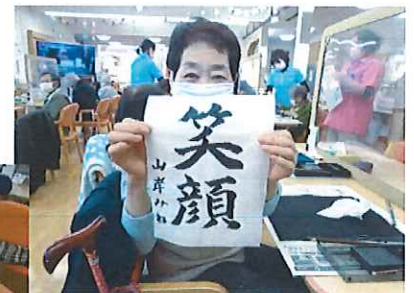 笑顔
山岸